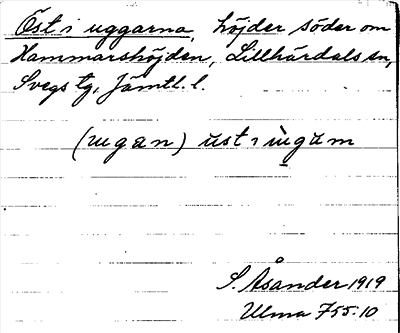 Öst i uggarna, höjder söder om
Hammarshöjden, Lillhärdals sn,
Svegs tg, Jämtl. l.
(ugan) ust i ùgum
S. Åsander 1919
Ulma 755:10